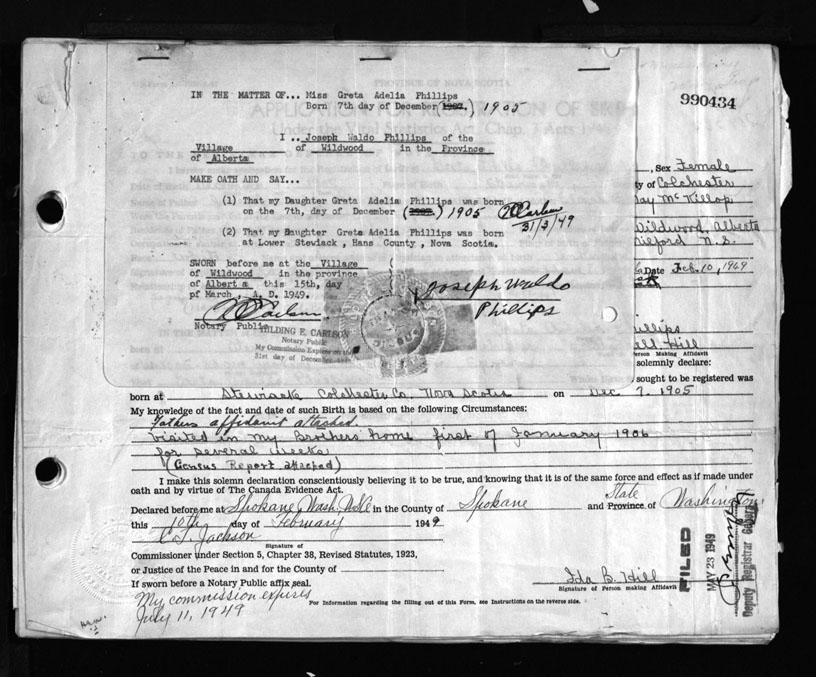 IN THE MATTER OF... Miss Greta Adelia Phillips
Born 7th day of December (1907.) 1905
990434
I .. Joseph Waldo Phillips of the
Village of Wildwood in the Province
of Alberta
MAKE OATH AND SAY...
(1) That my Daughter Greta Adelia Phillips was born
on the 7th, day of December (1907.) 1905
31/3/49
(2) That my Daughter Greta Adelia Phillips was born
at Lower Stewiack, Hans County, Nova Scotia.
SWORN before me at the Village
of Wildwood in the province
of Alberta this 15th, day
pf March, A. D. 1949.
Joseph Waldo
Phillips
Notary Public
HILDING E. CARLSON
Notary Public
My Commission Expires on the
31st day of December
, Sex Female
ty of Colchester
ay McKillop
Wildwood, Alberta
ilford N.S.
Date Feb. 10, 1949
illips
ell Hill
Person Making Affidavit
solemnly declare:
sought to be registered was
born at Stewiacke Colchester Co. Nova Scotia on Dec 7, 1905
My knowledge of the fact and date of such Birth is based on the following Circumstances:
Fathers affidavit attached.
Visited in my Brothers' home first of January 1906
for several weeks
(Census Report attached)
I make this solemn declaration conscientiously believing it to be true, and knowing that it is of the same force and effect as if made under
oath and by virtue of The Canada Evidence Act.
Declared before me at Spokane, Wash, in the County of Spokane and Province of State Washington
this 10th day of February 1949
C.T. Jackson
Signature of
Commissioner under Section 5, Chapter 38, Revised Statutes, 1923,
or Justice of the Peace in and for the County of
If sworn before a Notary Public affix seal.
My commission expires
July 11, 1949
Ida B. Hill
Signature of Person making Affidavit
For Information regarding the filling out of this Form, see Instructions on the reverse side.
FILED
MAY 23 1949
Deputy Registrar General